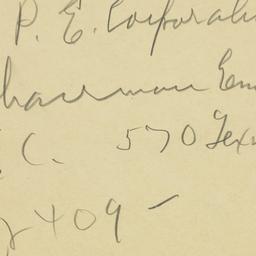 P. E. Corporati
hairman Em
C. 570 Lex
2409 -